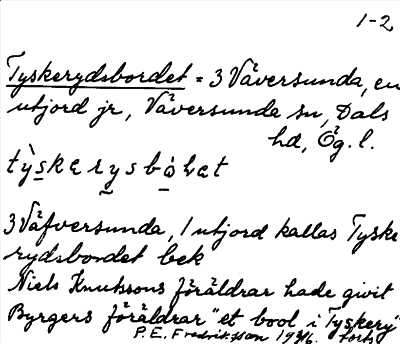 1-2
Tyskerydsbordet = 3 Väversunda, en
utjord jr, Väversunda sn, Dals
hd, Ög. l.
3 Väfversunda, 1 utjord kallas Tyske
rydsbordet bek
Niels Knutssons föräldrar hade givit
Byrgers föräldrar "et bool i Tyskery"
P. E. Fredriksson 19